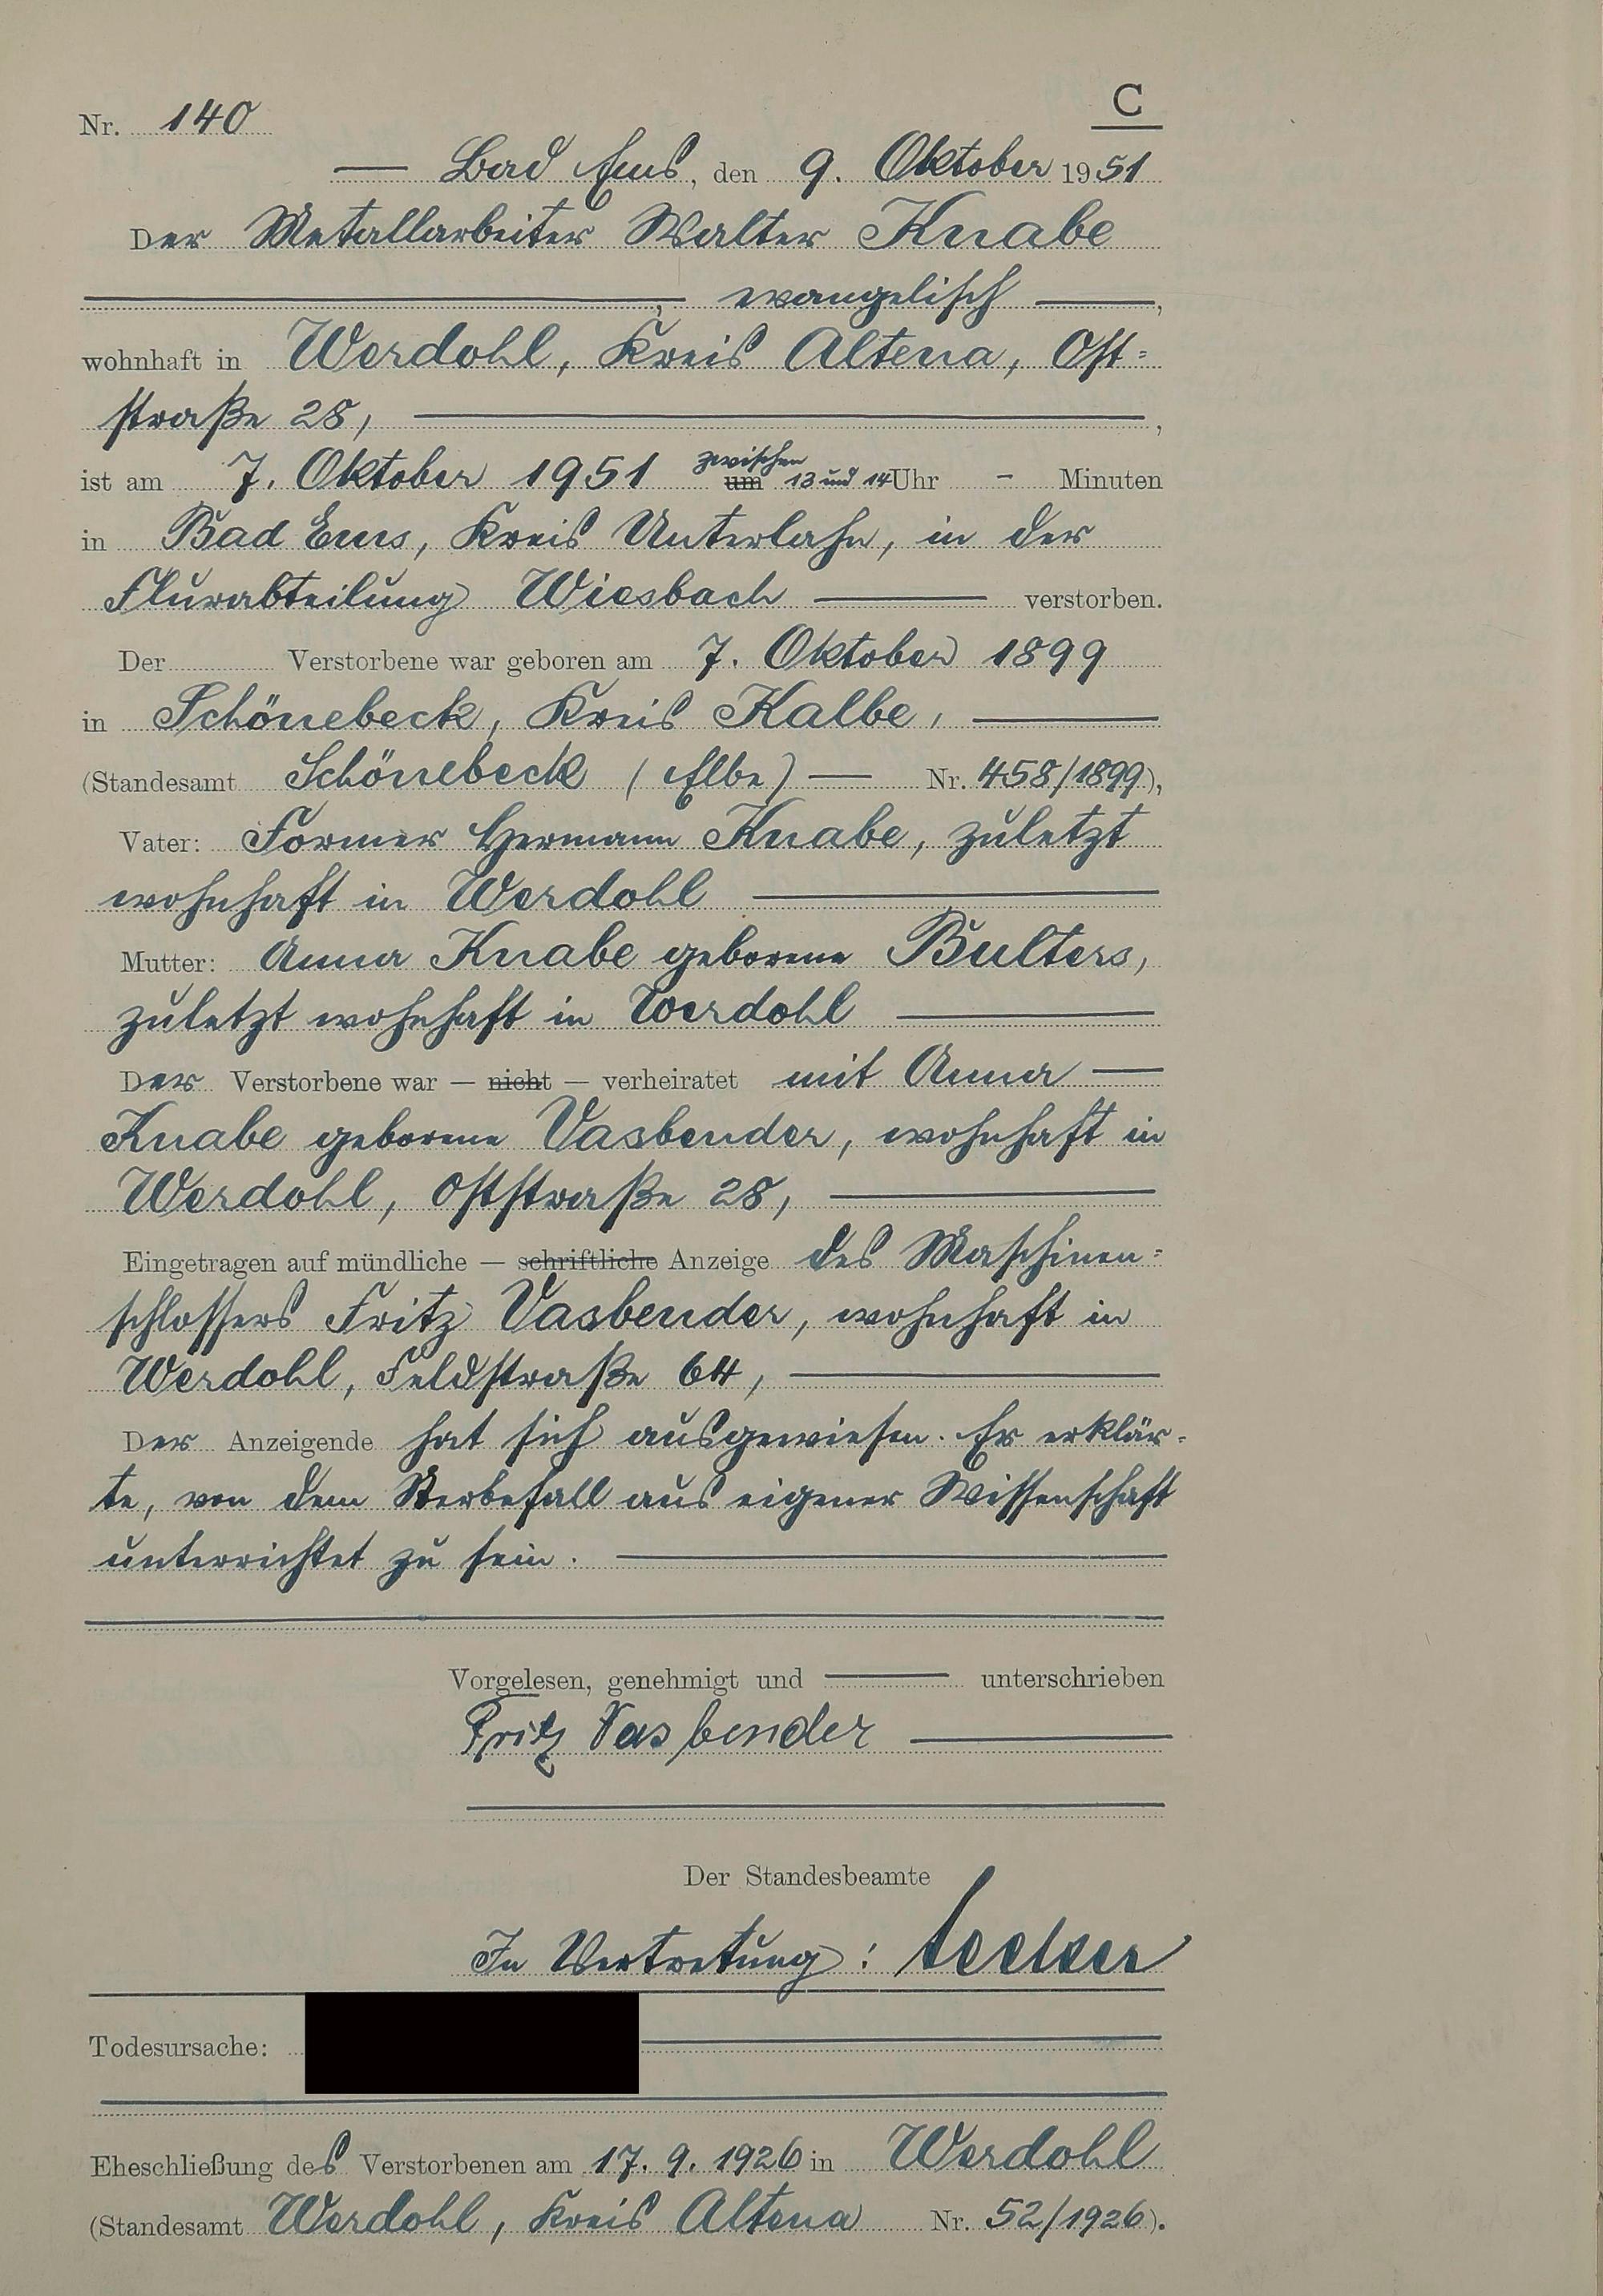 C
Nr. 140
Bad Ems, den 9. Oktober 1951
Der Metallarbeiter Walter Knabe
, evangelisch ,
wohnhaft in Werdohl, Kreis Altena, Ost=
straße 28, ,
zwischen
ist am 7. Oktober 1951 um 13 und 14 Uhr - Minuten
in Bad Ems, Kreis Unterlahn, in der
Flurabteilung Wiesbach verstorben.
Der Verstorbene war geboren am 7. Oktober 1899
in Schönebeck, Kreis Kalbe,
(Standesamt Schönebeck (Elbe) Nr. 458/1899),
Vater: Former Hermann Knabe, zuletzt
wohnhaft in Werdohl
Mutter: Anna Knabe geborene Bulters,
zuletzt wohnhaft in Werdohl
Der Verstorbene war — nicht — verheiratet mit Anna
Knabe geborene Vasbender, wohnhaft in
Werdohl, Oststraße 28,
Eingetragen auf mündliche — schriftliche Anzeige des Maschinen=
schlossers Fritz Vasbender, wohnhaft in
Werdohl, Feldstraße 64,
Der Anzeigende hat sich ausgewiesen. Er erklär-
te, von dem Sterbefall aus eigener Wissenschaft
unterrichtet zu sein.
Vorgelesen, genehmigt und unterschrieben
Fritz Vasbender
Der Standesbeamte
In Vertretung:
Todesursache:
Eheschließung des Verstorbenen am 17. 9. 1926 in Werdohl
(Standesamt Werdohl, Kreis Altena Nr. 52/1926).